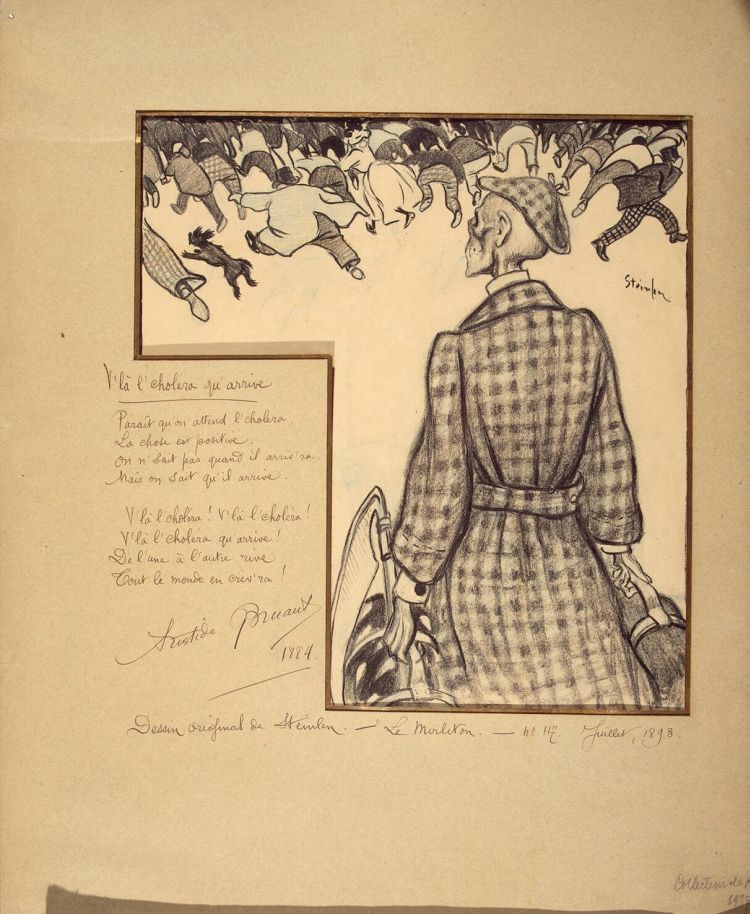 Steinlen
V'là l'choléra qu'arrive
Paraît qu'on attend l'choléra.
La chose est positive.
On n'sait pas quand il arriv'ra
Mais on sait qu'il arrive.
V'là l'choléra ! V'là l'choléra !
V'là l'choléra qu'arrive !
De l'une à l'autre rive
Tout le monde en crèv'ra !
Aristide Bruant
1884.
Dessin original de Steinlen. — "Le Mirliton. — n° 117. Juillet, 1893.
Collection de